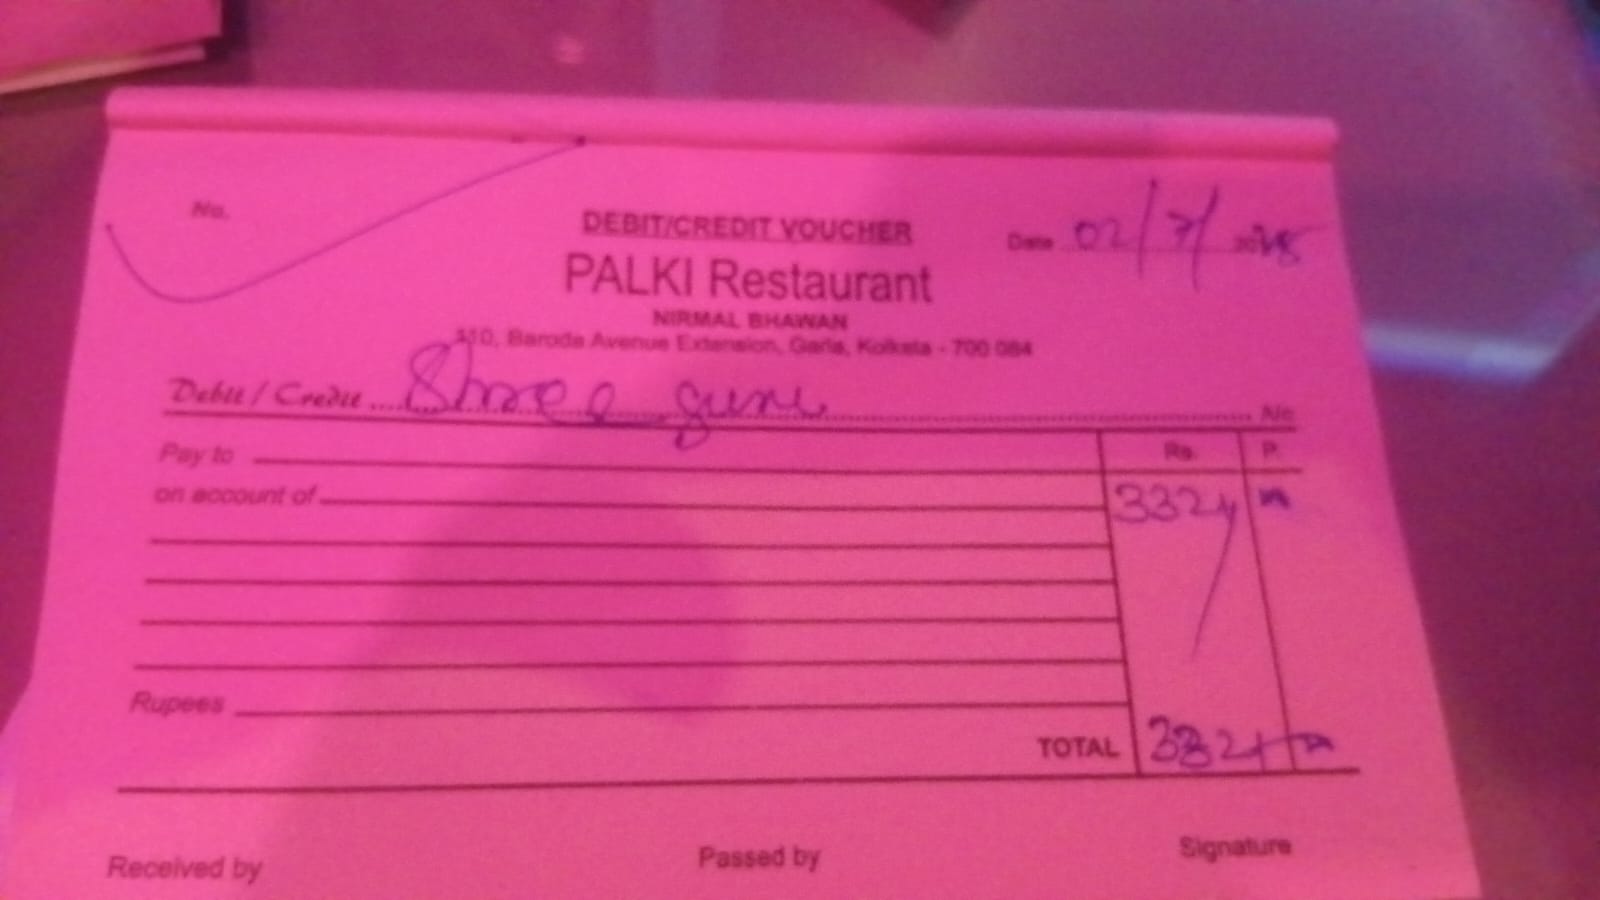 No.
DEBIT/CREDIT VOUCHER
Date 02/7/
PALKI Restaurant
NIRMAL BHAWAN
110, Baroda Avenue Extension, Garia, Kolkata - 700 084
Debit / Credit Shree guru A/c
Rs. P.
Pay to
on account of 3324
Rupees
TOTAL 3324
Received by Passed by Signature